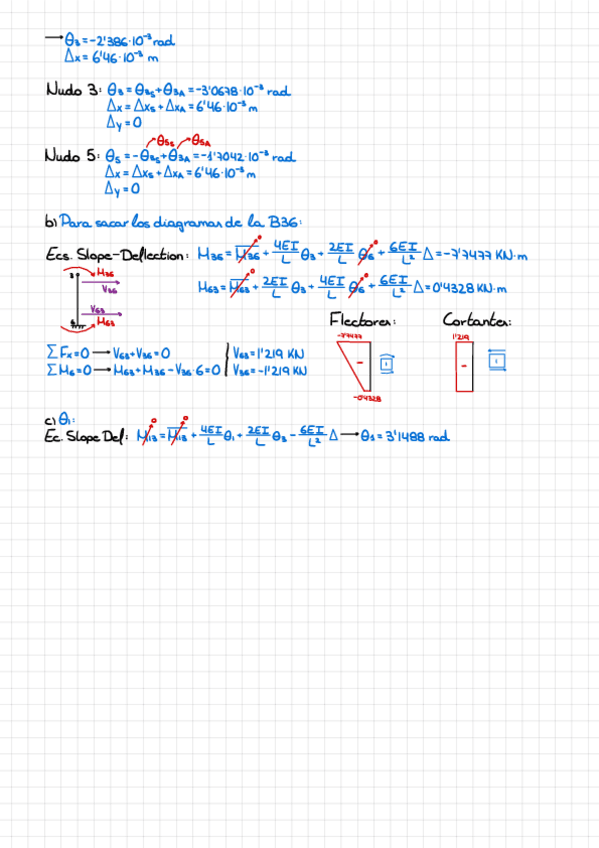 → θ₃ = -2'386·10⁻³ rad
Δx = 6'46·10⁻³ m
Nudo 3: θ₃ = θ₃ₛ + θ₃ₐ = -3'0678·10⁻³ rad
Δx = Δxₛ + Δxₐ = 6'46·10⁻³ m
Δy = 0
θ₅ₛ θ₅ₐ
Nudo 5: θ₅ = -θ₃ₛ + θ₃ₐ = -1'7042·10⁻³ rad
Δx = Δxₛ + Δxₐ = 6'46·10⁻³ m
Δy = 0
b) Para sacar los diagramas de la B36:
Ecs. Slope-Deflection: M₃₆ = M̅₃₆⁰ + 4EI/L θ₃ + 2EI/L θ₆⁰ + 6EI/L² Δ = -7'7477 KN·m
M₆₃ = M̅₆₃⁰ + 2EI/L θ₃ + 4EI/L θ₆⁰ + 6EI/L² Δ = 0'4328 KN·m
3 M₃₆
V₃₆
V₆₃
6 M₆₃
Flectores: Cortantes:
-7'7477 1'219
- -
-0'4328
ΣFx = 0 → V₆₃ + V₃₆ = 0 | V₆₃ = 1'219 KN
ΣM₆ = 0 → M₆₃ + M₃₆ - V₃₆·6 = 0 | V₃₆ = -1'219 KN
c) θ₁:
Ec. Slope Def: M₁₃⁰ = M̅₁₃⁰ + 4EI/L θ₁ + 2EI/L θ₃ - 6EI/L² Δ → θ₁ = 3'1488 rad